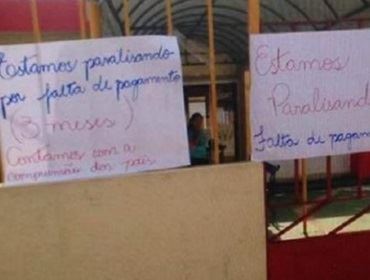 Estamos paralisando
por falta de pagamento
(3 meses)
Contamos com a
compreensão dos pais
Estamos
Paralisand
Falta de pagam